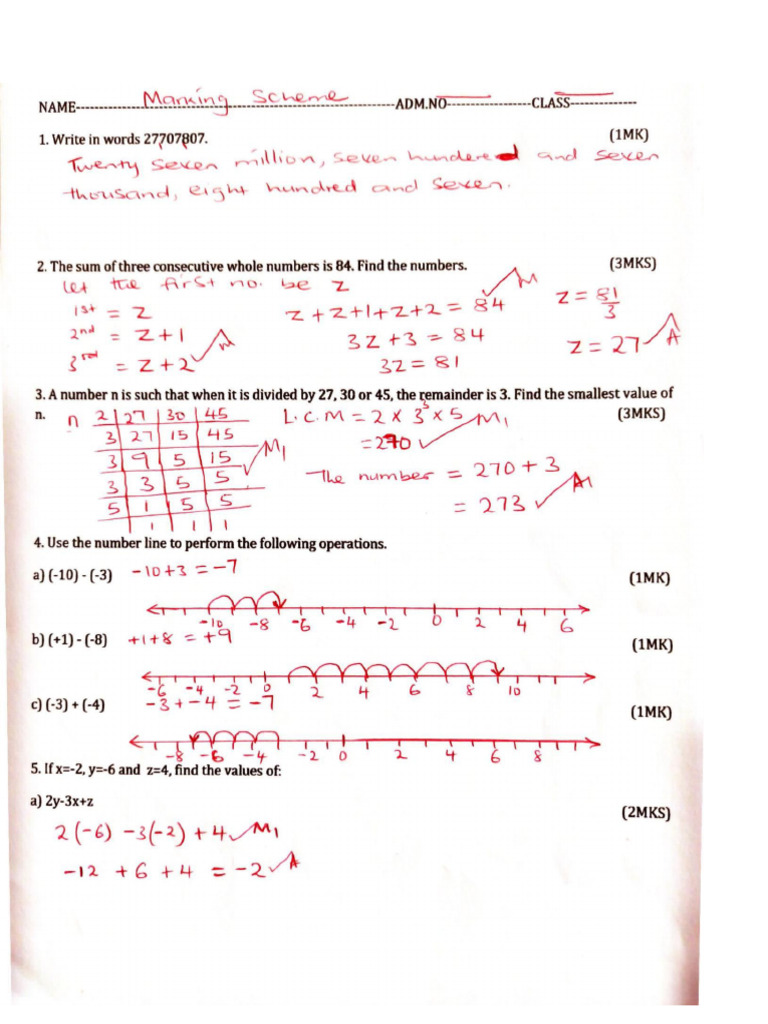 NAME Marking Scheme ADM.NO CLASS
1. Write in words 27707807. (1MK)
Twenty seven million, seven hundered and seven
thousand, eight hundred and seven.
2. The sum of three consecutive whole numbers is 84. Find the numbers. (3MKS)
let the first no. be z
1st = z
2nd = z+1
3rd = z+2 M
z + z+1+z+2 = 84 M
3z + 3 = 84
3z = 81
z = 81/3
z = 27 A
3. A number n is such that when it is divided by 27, 30 or 45, the remainder is 3. Find the smallest value of
n. (3MKS)
n 2 | 27 | 30 | 45
3 | 27 | 15 | 45
3 | 9 | 5 | 15 M1
3 | 3 | 5 | 5
5 | 1 | 5 | 5
1 | 1 | 1
L.C.M = 2 x 3³ x 5 M1
= 270
The number = 270 + 3
= 273 A1
4. Use the number line to perform the following operations.
a) (-10) - (-3) -10+3 = -7 (1MK)
-10 -8 -6 -4 -2 0 2 4 6
b) (+1) - (-8) +1+8 = +9 (1MK)
-6 -4 -2 0 2 4 6 8 10
c) (-3) + (-4) -3+-4 = -7 (1MK)
-8 -6 -4 -2 0 2 4 6 8
5. If x=-2, y=-6 and z=4, find the values of:
a) 2y-3x+z (2MKS)
2(-6) -3(-2) +4 M1
-12 +6 +4 = -2 A